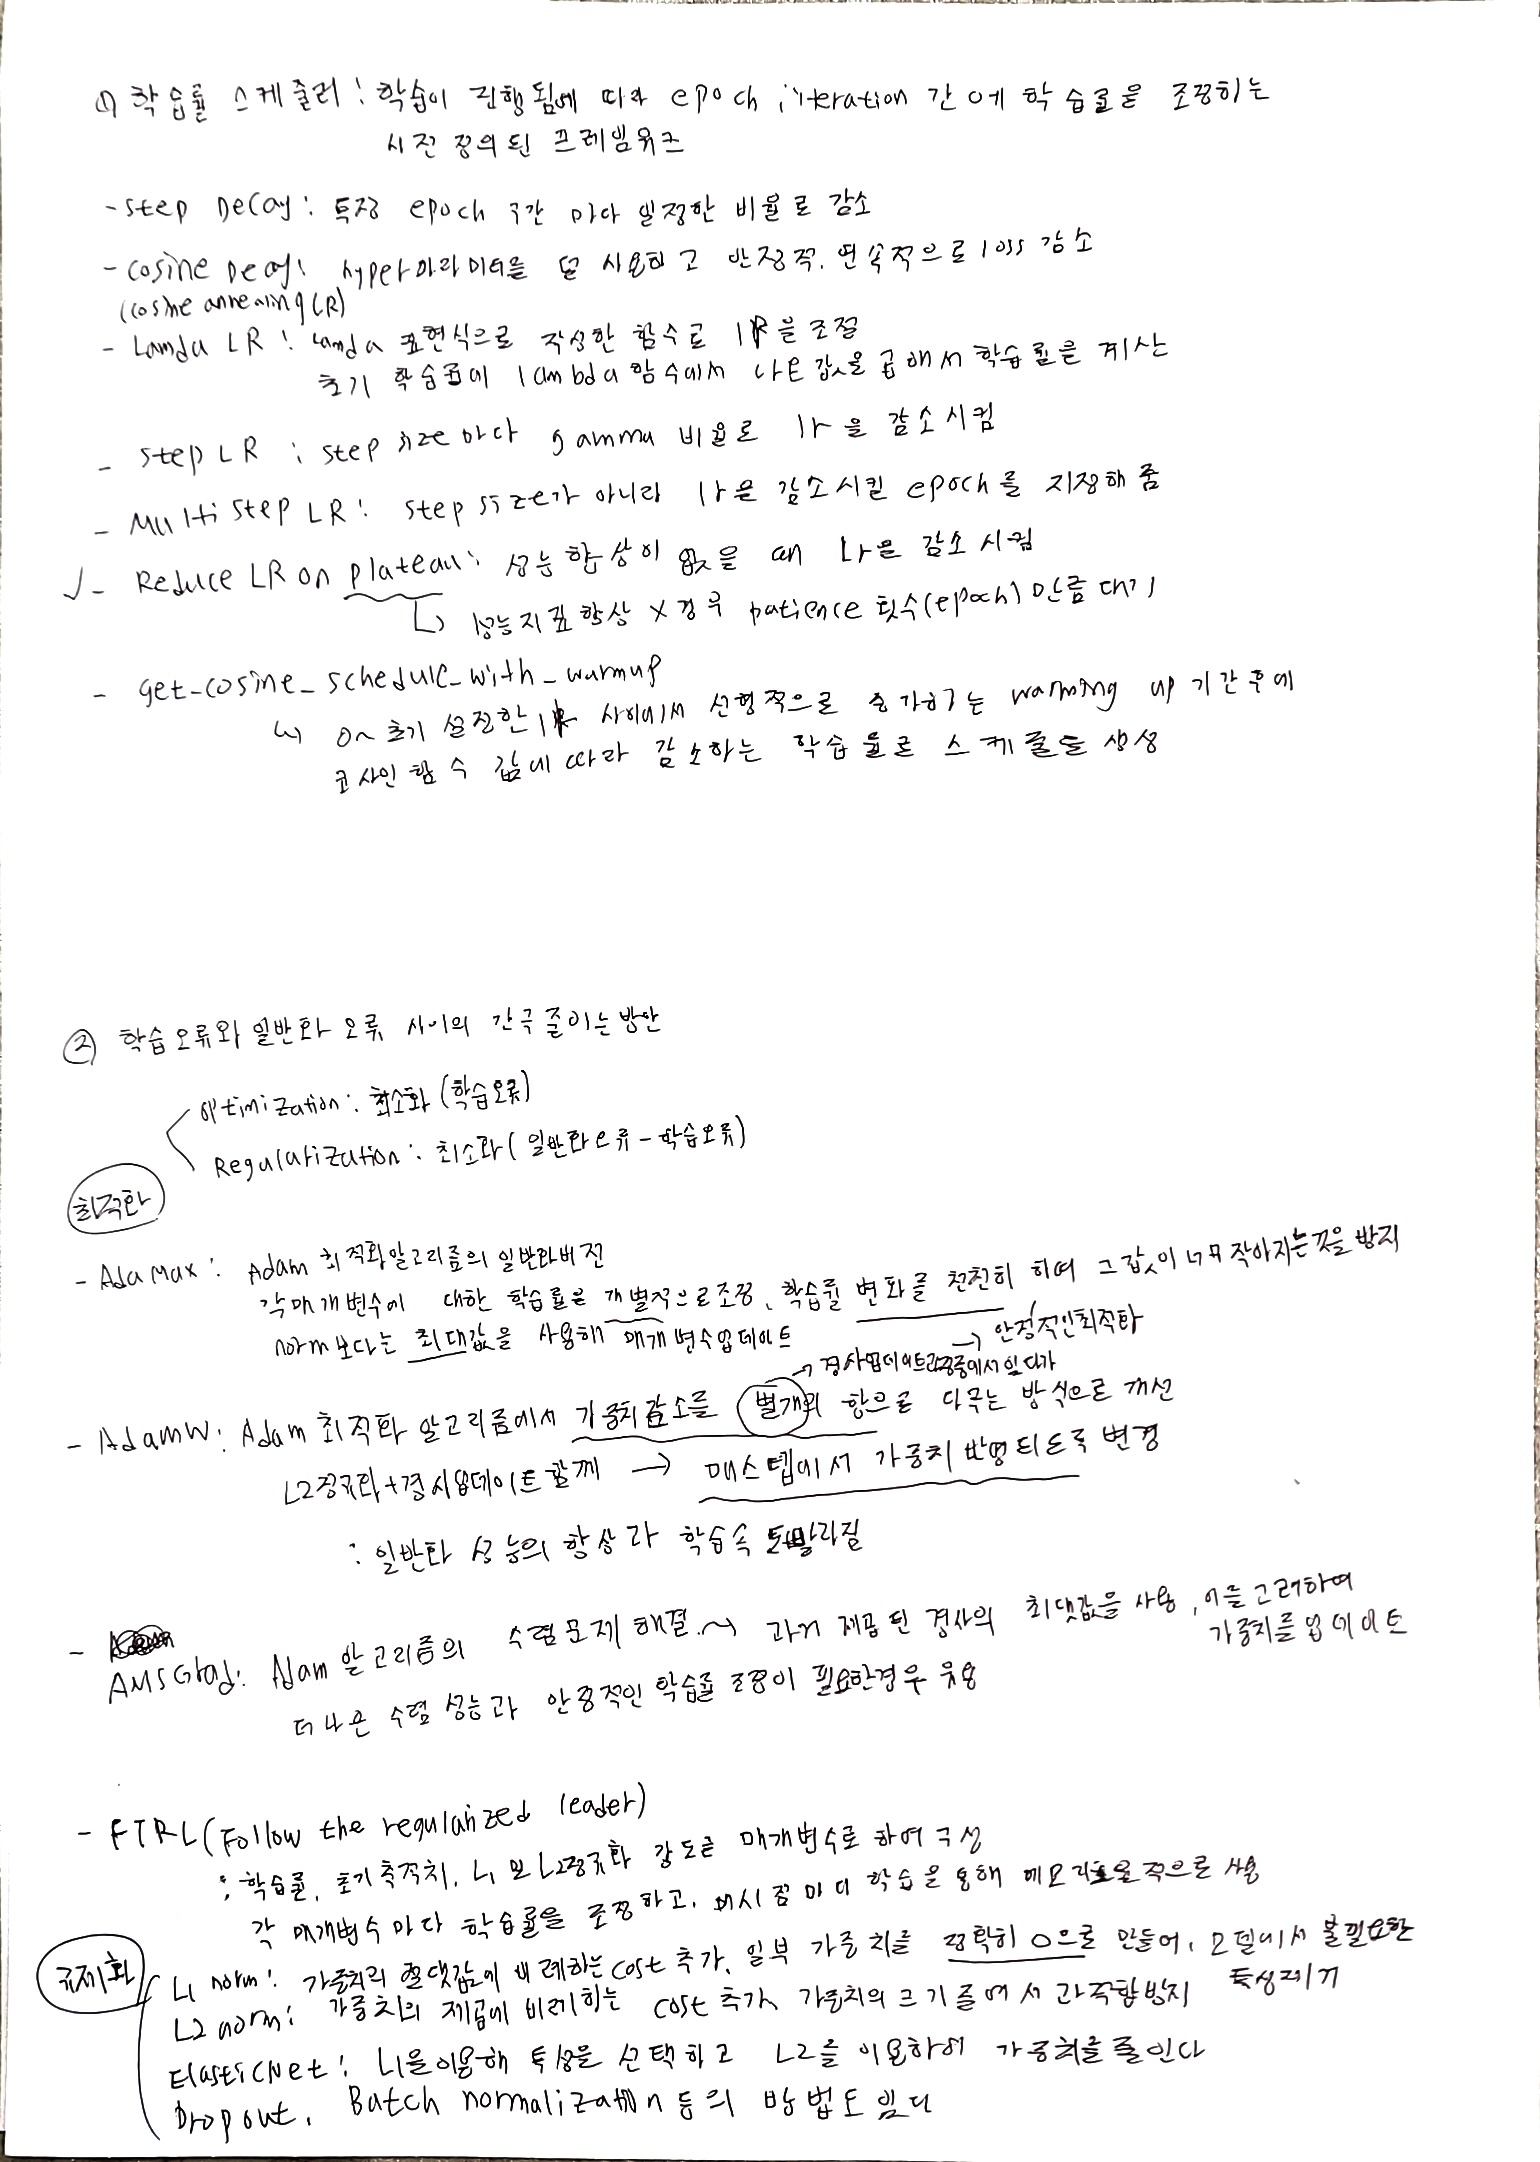 ① 학습률 스케줄러 : 학습이 진행됨에 따라 epoch, iteration 간에 학습률을 조정하는
사전 정의된 프레임워크
- Step Decay : 특정 epoch 구간 마다 일정한 비율로 감소
- Cosine Decay : hyper파라미터를 덜 사용하고 안정적, 연속적으로 loss 감소
(Cosine annealing LR)
- Lamda LR : lamda 표현식으로 작성한 함수로 lR을 조절
초기 학습률에 lambda 함수에서 나온 값을 곱해서 학습률을 계산
- Step LR : step size 마다 gamma 비율로 lr을 감소시킴
- Multi Step LR : step size가 아니라 lr을 감소시킬 epoch를 지정해 줌
✓ - Reduce LR on plateau : 성능 향상이 없을 때 Lr을 감소 시킴
↳ 성능지표 향상 X 경우 patience 횟수(epoch)만큼 대기
- get_cosine_schedule_with_warmup
↳ 0~초기 설정한 lR 사이에서 선형적으로 증가하는 warming up 기간후에
코사인 함수 값에 따라 감소하는 학습률로 스케줄을 생성
② 학습오류와 일반화 오류 사이의 간극 줄이는 방안
optimization : 최소화 (학습오류)
Regularization : 최소화 ( 일반화오류 - 학습오류)
최적화
- AdaMax : Adam 최적화알고리즘의 일반화버전
각매개변수에 대한 학습률을 개별적으로조정, 학습률 변화를 천천히 하여 그값이 너무 작아지는것을 방지
norm보다는 최대값을 사용해 매개변수업데이트 → 안정적인최적화
→ 경사업데이트과정중에서 있다가
- AdamW : Adam 최적화 알고리즘에서 가중치감소를 별개의 항으로 다루는 방식으로 개선
L2정규화+경사업데이트함께 → 매스텝에서 가중치 반영되도록 변경
: 일반화 성능의 향상과 학습속도빨라짐
- AMSGrad : Adam 알고리즘의 수렴문제 해결 → 과거 제곱된 경사의 최댓값을 사용, 이를 고려하여
가중치를 업데이트
더 나은 수렴 성능과 안정적인 학습률 조정이 필요한경우 유용
- FTRL (Follow the regularized leader)
: 학습률, 초기 축적치, L1 및 L2정규화 강도를 매개변수로 하여 구성
각 매개변수 마다 학습률을 조정하고, 매시점 마다 학습을 통해 메모리효율적으로 사용
규제화
L1 norm : 가중치의 절댓값에 비례하는 cost 추가, 일부 가중치를 정확히 0으로 만들어, 모델에서 불필요한
특성제거
L2 norm : 가중치의 제곱에 비례하는 cost 추가, 가중치의 크기 줄여서 과적합방지
ElasticNet : L1을이용해 특성을 선택하고 L2를 이용하여 가중치를 줄인다
Dropout, Batch normalization 등의 방법도 있다